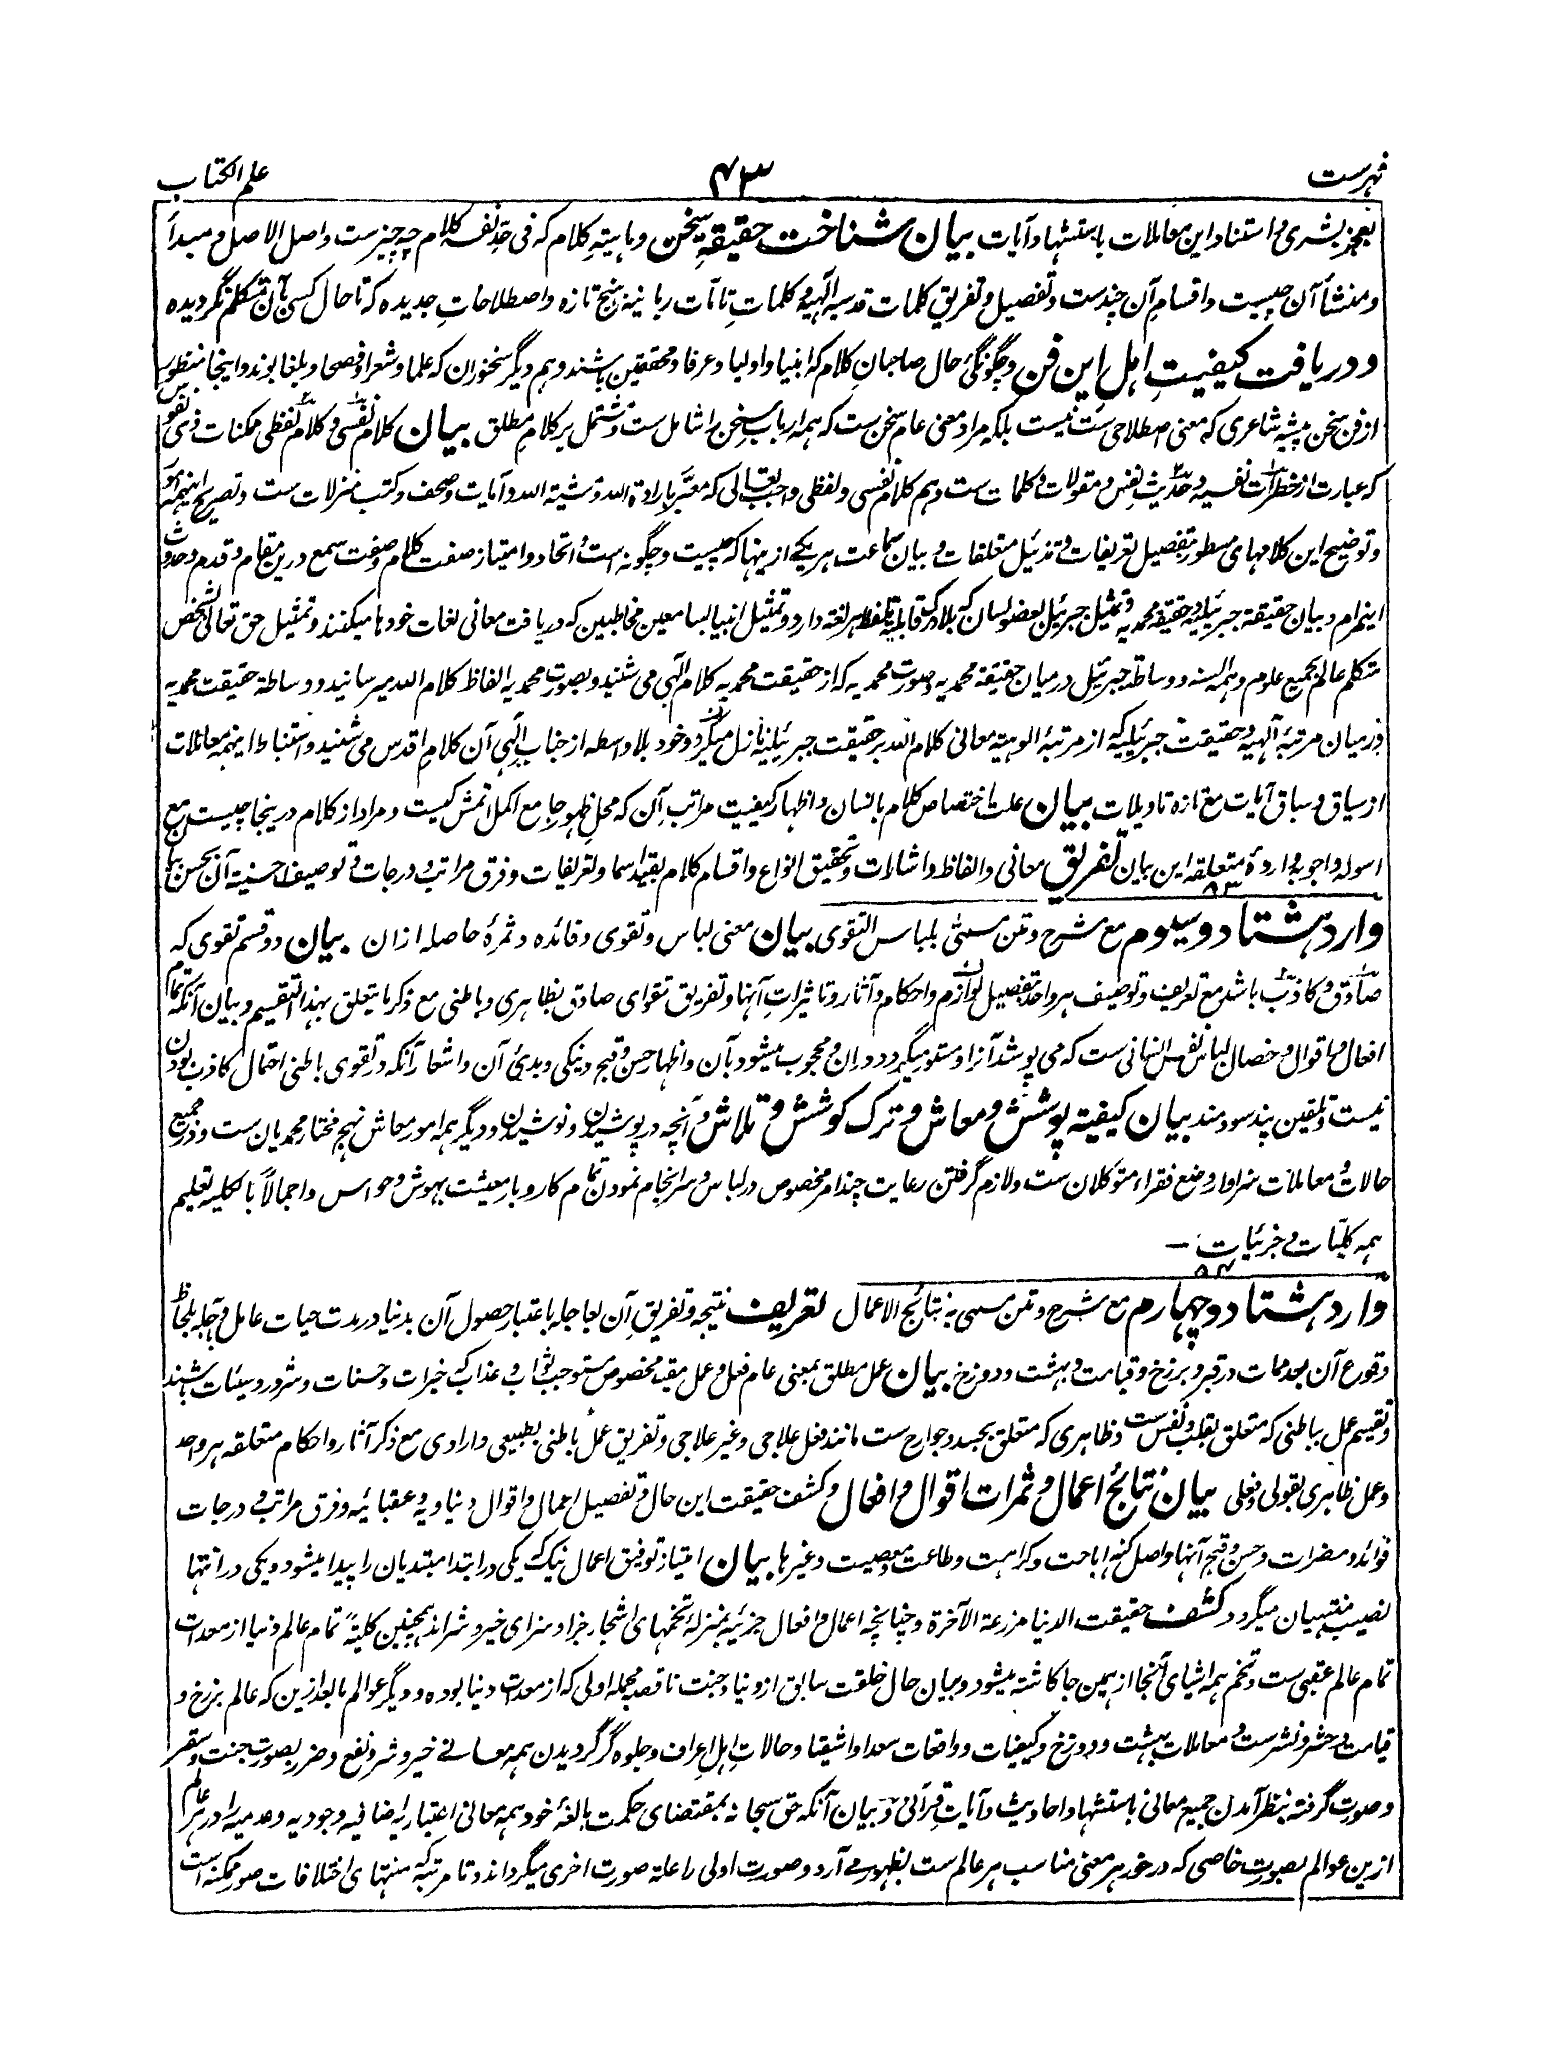 فهرست
۴۳
علم الکتاب
بعجز بشری و استناد این معاملات باستشهاد آیات بیان شناخت حقیقۃِ سخن و ماہیتِ کلام کہ فی حد نفسہ کلام چہ چیز ست و اصل الاصل و مبدأ
و منشأ آن چیست و اقسامِ آن چند ست و تفصیل و تفریق کلمات قدسیہ آلٰہیہ و کلماتِ تامّات ربانیہ بنہج تازہ و اصطلاحاتِ جدیدہ کہ تا حال کسی بآن متکلم نگردیدہ
و دریافت کیفیتِ اہلِ این فن و چگونگی حال صاحبانِ کلام کہ انبیا و اولیا و عرفا و محققین باشند و ہم دیگر سخنوران کہ علما و شعرا و فصحا و بلغا بوند و اینجا منظور
از فن سخن پیشہ شاعری کہ معنی اصطلاحی ست نیست بلکہ مراد معنی عام سخن ست کہ ہمہ ارباب سخن را شامل ست و مشتمل بر کلامِ مطلق بیان کلام نفسی و کلام لفظی ممکنات ذی نفوس
کہ عبارت از خطرات نفسیہ و حدیث نفس و مقولات و کلمات ست و ہم کلام نفسی و لفظی واجب تعالی کہ معبّر بارادۃ اللہ و مشیۃ اللہ و آیات و صحف و کتب منزلات ست و تصریح اینہمہ
و توضیح این کلامہای مسطور بتفصیل تعریفات و تذئیل متعلقات و بیان سماعت ہر یکے ازینہا کہ چیست و چگونہ است و اتحاد و امتیاز صفت کلام و صفت سمع درین مقام و قدم و حدوث
اینہرام و بیان حقیقۃ جبرئیلیہ و حقیقۃ محمدیہ و تمثیل جبرئیل بعضو لسان کہ بلا درک قابلیۃ تلفظ ہر لغۃ دارد و تمثیل انبیا بسامعین مخاطبین کہ دریافت معانی لغات خودہا میکنند و تمثیل حق تعالی بشخص
متکلم عالم بجمیع علوم و ہمہ السنہ و وساطۃ جبرئیل درمیان حقیقۃ محمدیہ و صورت محمدیہ کہ از حقیقت محمدیہ کلام آلٰہی می شنید و بصورت محمدیہ الفاظ کلام اللہ میرسانید و وساطۃ حقیقت محمدیہ
درمیان مرتبۂ آلٰہیہ و حقیقت جبرئیلیہ کہ از مرتبۂ الوہیتہ معانی کلام اللہ بر حقیقت جبرئیلیہ نازل میگردد و خود بلا واسطہ از جناب آلٰہی آن کلامِ اقدس می شنید و استنباط اینہمہ معاملات
از سیاق و سباق آیات مع تازہ تاویلات بیان علت اختصاص کلام بانسان و اظہار کیفیت مراتب آن کہ محلِ ظہور جامع اکمل اتمش کیست و مراد از کلام درینجا چیست مع
اسولہ و اجوبۂ واردۂ متعلقہ این بیان تفریق معانی و الفاظ و اشارات و تحقیق انواع و اقسام کلام بقید اسما و تعریفات و فرق مراتب و درجات و توصیف احسنیتہ آن بحسن بیان
۸۳
وارد ہشتاد و سیوم مع شرح و متن مسمّٰی بلباس التقوی بیان معنی لباس و تقوی و فائدہ و ثمرۂ حاصلہ ازان بیان دو قسم تقوی کہ
صادق و کاذب باشد مع تعریف و توصیف ہر واحد بتفصیل لوازم و احکام و آثار و تاثیراتِ آنہا و تفریق تقوای صادق بظاہری و باطنی مع ذکر ما یتعلق بہذا التقسیم و بیان آنکہ تمام
افعال و اقوال و خصال لباس نفس انسانی ست کہ می پوشد آنرا و مستور میگردد دران و محجوب میشود بآن و اظہار حسن و قبح و نیکی و بدی آن و اشعار آنکہ در تقوی باطنی احتمال کاذب بودن
نیست و تلقین پند سودمند بیان کیفیۃ پوشش و معاش و ترک کوشش و تلاش و آنچہ در پوشیدن و نوشیدن و دیگر ہمہ امور معاش نہج مختار محمدیان ست و در جمیع
حالات و معاملات سزاوار وضع فقراء متوکلان ست و لازم گرفتن رعایت چند امر مخصوص در لباس و سرانجام نمودن تمام کاروبار معیشت بہوش و حواس و اجمالاً بالکلیہ تعلیم
ہمہ کلیّات و جزئیات ـ
۸۴
وارد ہشتاد و چہارم مع شرح و متن مسمی بہ نتائج الاعمال تعریف نتیجہ و تفریق آن بعاجلہ باعتبار حصول آن بدنیا در مدت حیات عامل و آجلہ بلحاظ
وقوع آن بعد ممات در قبر و برزخ و قیامت و بہشت و دوزخ بیان عمل مطلق بمعنی عام فعل و عمل مقید مخصوص مستوجب ثواب و عذاب کہ خیرات و حسنات و شرور و سیئات باشند
و تقسیم عمل بباطنی کہ متعلق بقلب و نفس ست و ظاہری کہ متعلق بجسد و جوارح ست مانند فعل علاجی و غیر علاجی و تفریق عمل باطنی بطبیعی و ارادی مع ذکر آثار و احکام متعلقہ ہر واحد
و عمل ظاہری بقولی و فعلی بیان نتائج اعمال و ثمرات اقوال و افعال و کشف حقیقت این حال و تفصیل اعمال و اقوال دنیاویہ و عقبائیہ و فرق مراتب و درجات
فوائد و مضرات و حسن و قبح آنہا و اصل کنہ اباحت و کراہت و طاعت و معصیت و غیرہا بیان امتیاز توفیق اعمال نیک کہ یکی در ابتدا مبتدیان را پیدا میشود و یکی در انتہا
نصیب منتہیان میگردد کشف حقیقت الدنیا مزرعۃ الآخرۃ و چنانچہ اعمال و افعال جزئیہ بمنزلۂ تخمہای اشجار جزا و سزای خیر و شر اند ہمچنین کلیۃً تمام عالم دنیا از معدات
تمام عالم عقبی ست و تخم ہمہ اشیای آنجا از ہمین جا کاشتہ میشود و بیان حال خلقت سابق از دنیا و جنت ناقصہ مجملہ اولی کہ از معدات دنیا بودہ و دیگر عوالم ما بعد ازین کہ عالم برزخ و
قیامت و حشر و نشر ست و معاملات بہشت و دوزخ و کیفیات و واقعات سعدا و اشقیا و حالاتِ اہلِ اعراف و جلوہ گر گردیدن ہمہ معانے خیر و شر و نفع و ضرر بصورت جنت و سقر
و صورت گرفتہ بنظر آمدن جمیع معانی باستشہاد احادیث و آیاتِ قرآنی و بیان آنکہ حق سبحانہ بمقتضای حکمت بالغۂ خود ہمہ معانی اعتباریہ اضافیہ وجودیہ و عدمیہ را در ہر عالم
ازین عوالم بصورت خاصی کہ درخور ہر معنی مناسب ہر عالم ست بظہور مے آرد و صورت اولی را علۃ صورت اخری میگرداند و تا مرتبہ کہ منتہای اختلافات صور ممکنہ است